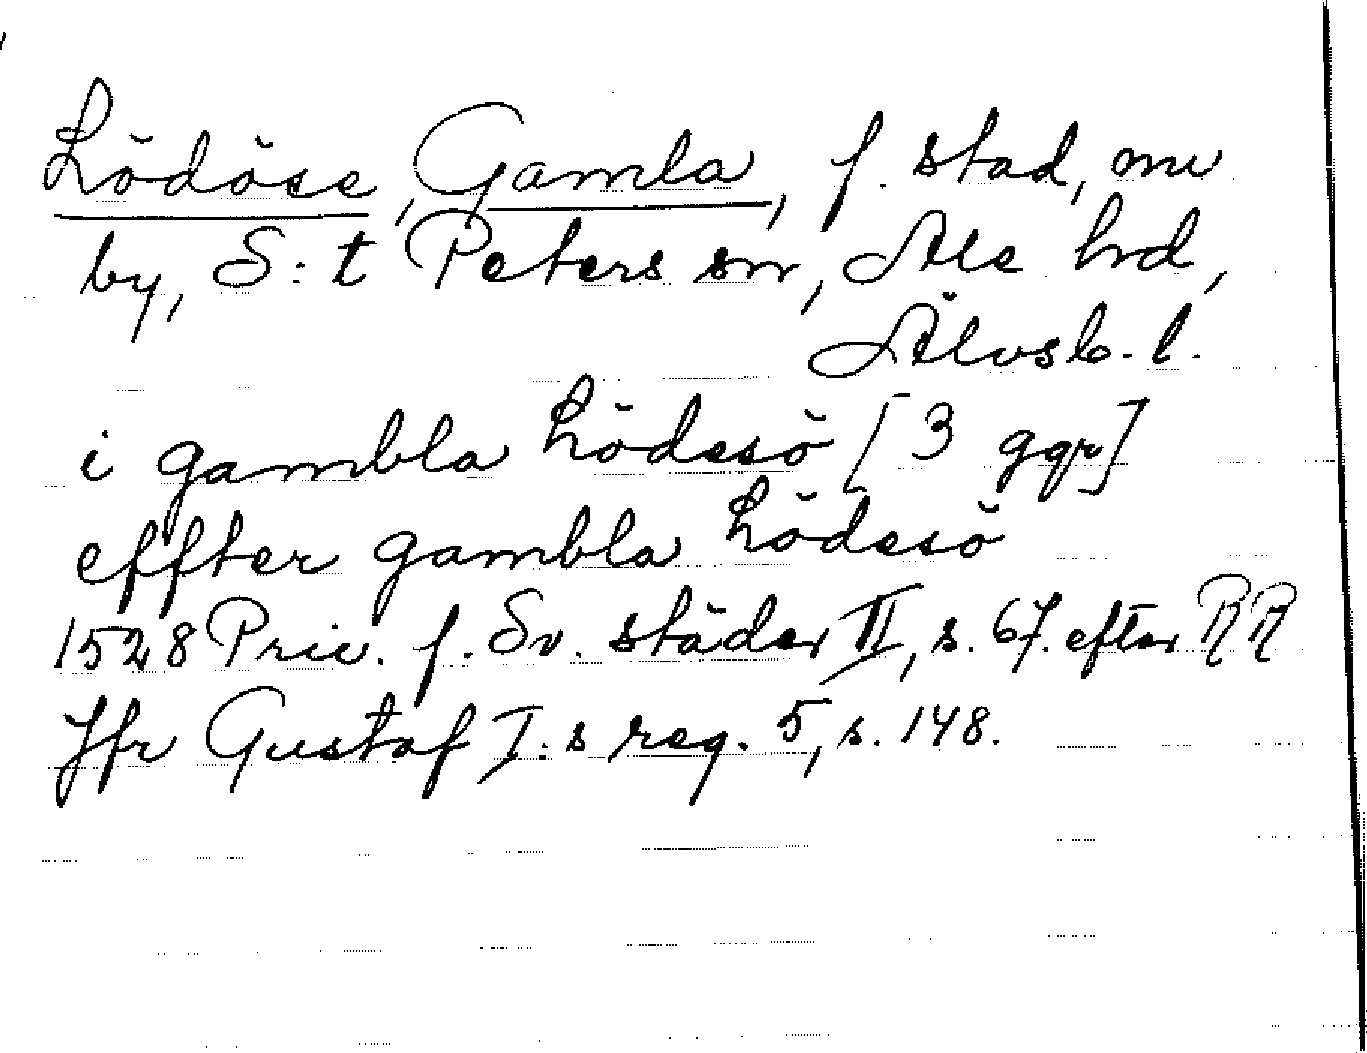 Lödöse, Gamla, f. stad, nu
by, S:t Peters sn, Ale hd,
Älvsb. l.
i gambla Lödesö [3 ggr]
effter gambla Lödesö
1528 Priv. f. Sv. städer II, s. 67. efter RR
Jfr Gustaf I:s reg. 5, s. 148.